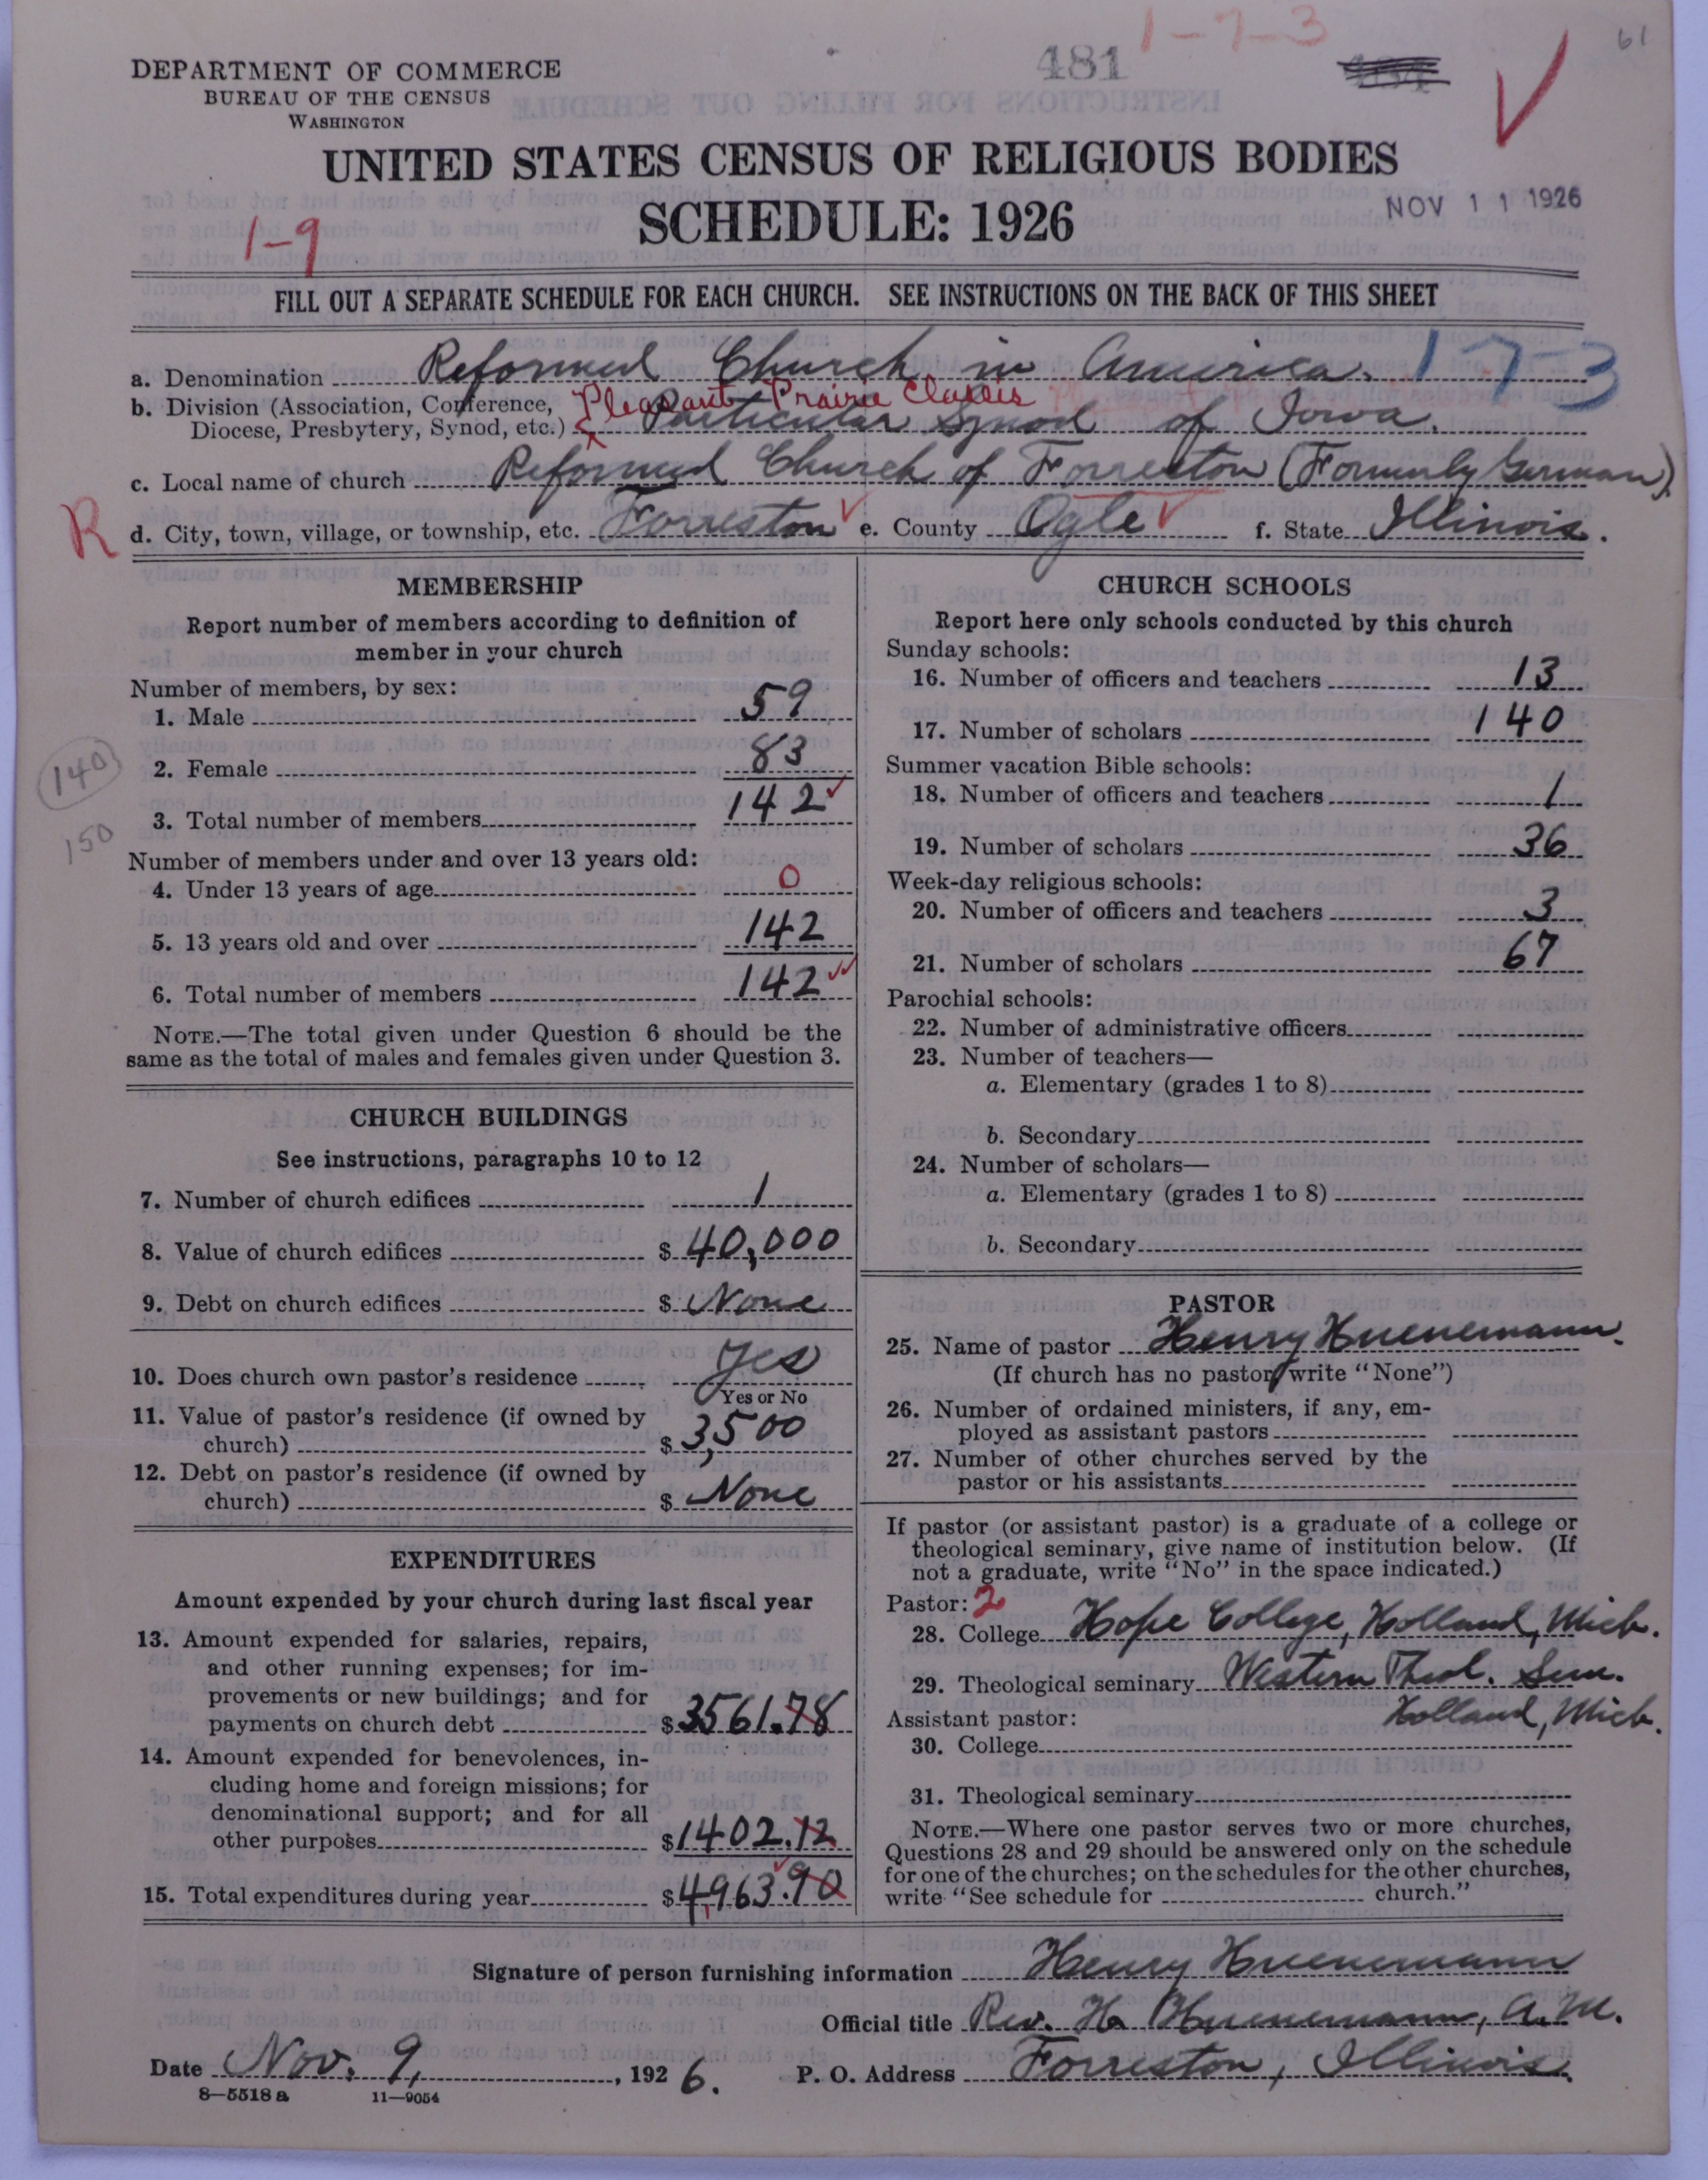 61
1-7-3
481
DEPARTMENT OF COMMERCE
BUREAU OF THE CENSUS
WASHINGTON
UNITED STATES CENSUS OF RELIGIOUS BODIES
SCHEDULE: 1926
NOV 11 1926
1-9
FILL OUT A SEPARATE SCHEDULE FOR EACH CHURCH. SEE INSTRUCTIONS ON THE BACK OF THIS SHEET
a. Denomination Reformed Church in America. 1-7-3
b. Division (Association, Conference, Pleasant Prairie Classis
Diocese, Presbytery, Synod, etc.) Particular Synod of Iowa.
c. Local name of church Reformed Church of Forreston (Formerly German)
R d. City, town, village, or township, etc. Forreston e. County Ogle f. State Illinois.
MEMBERSHIP
Report number of members according to definition of
member in your church
Number of members, by sex:
1. Male 59
2. Female 83
140
3. Total number of members 142
150
Number of members under and over 13 years old:
4. Under 13 years of age 0
5. 13 years old and over 142
6. Total number of members 142
NOTE.—The total given under Question 6 should be the
same as the total of males and females given under Question 3.
CHURCH BUILDINGS
See instructions, paragraphs 10 to 12
7. Number of church edifices 1
8. Value of church edifices $ 40,000
9. Debt on church edifices $ None
10. Does church own pastor's residence Yes
Yes or No
11. Value of pastor's residence (if owned by
church) $ 3,500
12. Debt on pastor's residence (if owned by
church) $ None
EXPENDITURES
Amount expended by your church during last fiscal year
13. Amount expended for salaries, repairs,
and other running expenses; for im-
provements or new buildings; and for
payments on church debt $3561.78
14. Amount expended for benevolences, in-
cluding home and foreign missions; for
denominational support; and for all
other purposes $1402.12
15. Total expenditures during year $4963.90
CHURCH SCHOOLS
Report here only schools conducted by this church
Sunday schools:
16. Number of officers and teachers 13
17. Number of scholars 140
Summer vacation Bible schools:
18. Number of officers and teachers 1
19. Number of scholars 36
Week-day religious schools:
20. Number of officers and teachers 3
21. Number of scholars 67
Parochial schools:
22. Number of administrative officers
23. Number of teachers—
a. Elementary (grades 1 to 8)
b. Secondary
24. Number of scholars—
a. Elementary (grades 1 to 8)
b. Secondary
PASTOR
25. Name of pastor Henry Huenemann.
(If church has no pastor write "None")
26. Number of ordained ministers, if any, em-
ployed as assistant pastors
27. Number of other churches served by the
pastor or his assistants
If pastor (or assistant pastor) is a graduate of a college or
theological seminary, give name of institution below. (If
not a graduate, write "No" in the space indicated.)
Pastor: 2
28. College Hope College, Holland, Mich.
29. Theological seminary Western Theol. Sem.
Assistant pastor: Holland, Mich.
30. College
31. Theological seminary
NOTE.—Where one pastor serves two or more churches,
Questions 28 and 29 should be answered only on the schedule
for one of the churches; on the schedules for the other churches,
write "See schedule for church."
Signature of person furnishing information Henry Huenemann
Official title Rev. H. Huenemann, A.M.
Date Nov. 9, 1926. P. O. Address Forreston, Illinois.
8—5518a 11—9054